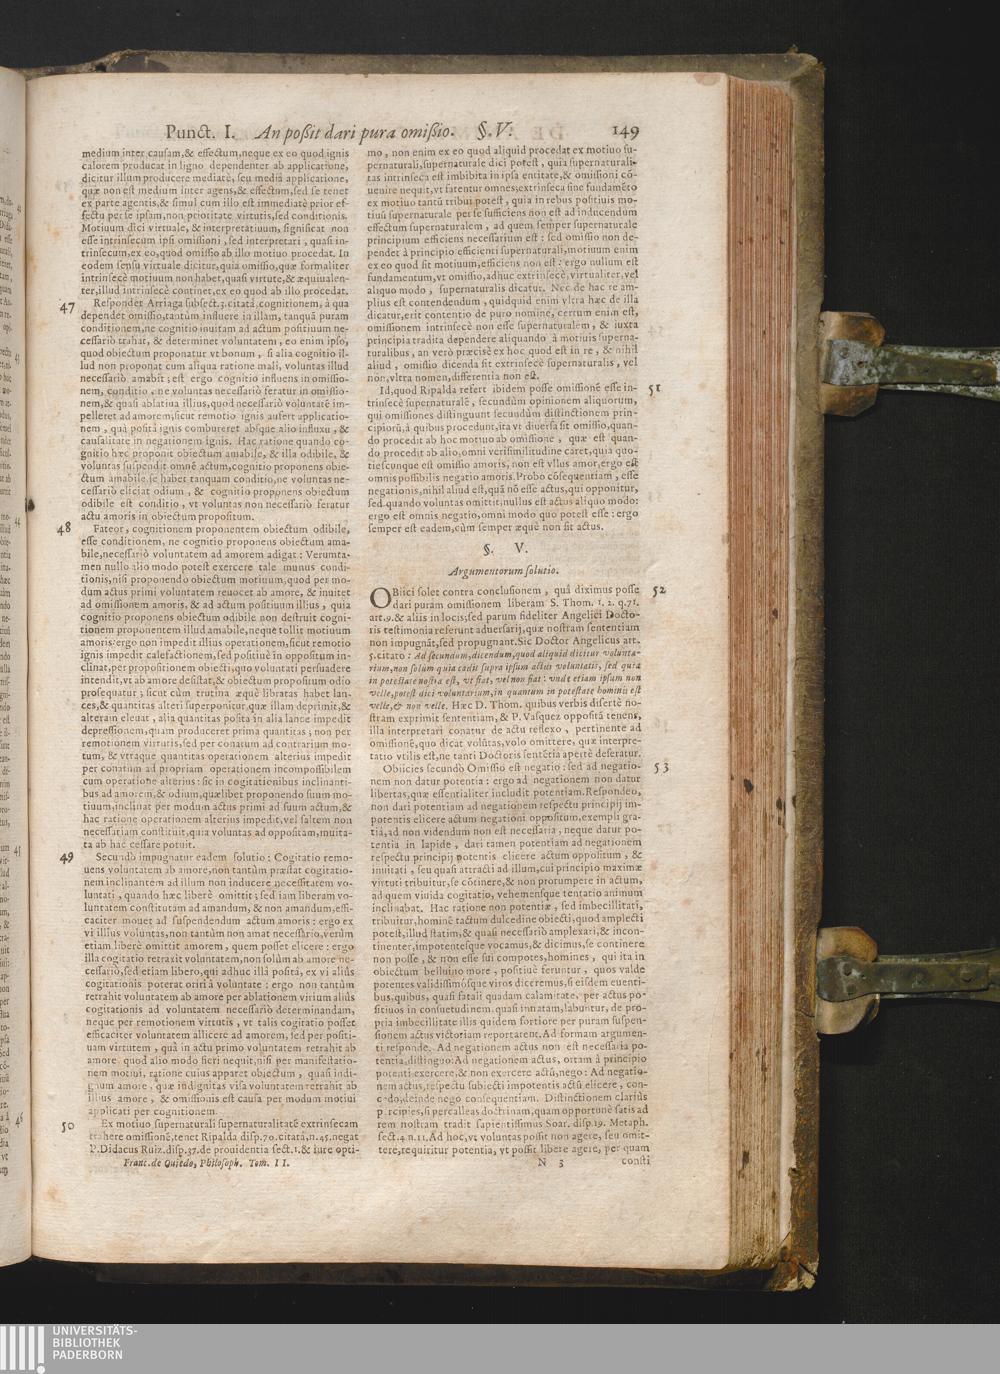 Punct. I. An poßit dari pura omißio. §. V. 149
medium inter causam,& effectum,neque ex eo quod ignis
calorem producat in ligno dependenter ab applicatione,
dicitur illum producere mediatè, seu mediâ applicatione,
quæ non est medium inter agens,& effectum,sed se tenet
ex parte agentis,& simul cum illo est immediatè prior ef-
fectu per se ipsam,non prioritate virtutis,sed conditionis.
Motiuum dici virtuale, & interpretatiuum, significat non
esse intrinsecum ipsi omissioni , sed interpretari , quasi in-
trinsecum,ex eo,quod omissio ab illo motiuo procedat. In
eodem sensu virtuale dicitur,quia omissio,quæ formaliter
intrinsecè motiuum non habet,quasi virtute,& æquiualen-
ter,illud intrinsecè continet,ex eo quod ab illo procedat.
47 Respondet Arriaga subsect.3.citatâ,cognitionem, à qua
dependet omissio,tantùm influere in illam, tanquã puram
conditionem,ne cognitio inuitam ad actum positiuum ne-
cessariò trahat, & determinet voluntatem , eo enim ipso,
quod obiectum proponatur vt bonum , si alia cognitio il-
lud non proponat cum aliqua ratione mali, voluntas illud
necessariò amabit ; est ergo cognitio influens in omissio-
nem, conditio , ne voluntas necessariò feratur in omissio-
nem,& quasi ablatiua illius,quod necessariò voluntatẽ im-
pelleret ad amorem,sicut remotio ignis aufert applicatio-
nem , quâ positâ ignis combureret absque alio influxu , &
causalitate in negationem ignis. Hac ratione quando co-
gnitio hæc proponit obiectum amabile, & illa odibile, &
voluntas suspendit omnẽ actum,cognitio proponens obie-
ctum amabile,se habet tanquam conditio,ne voluntas ne-
cessariò eliciat odium , & cognitio proponens obiectum
odibile est conditio , vt voluntas non necessariò feratur
actu amoris in obiectum propositum.
48 Fateor, cognitionem proponentem obiectum odibile,
esse conditionem, ne cognitio proponens obiectum ama-
bile,necessariò voluntatem ad amorem adigat : Verumta-
men nullo alio modo potest exercere tale munus condi-
tionis,nisi proponendo obiectum motiuum,quod per mo-
dum actus primi voluntatem reuocet ab amore, & inuitet
ad omissionem amoris, & ad actum positiuum illius , quia
cognitio proponens obiectum odibile non destruit cogni-
tionem proponentem illud amabile,neque tollit motiuum
amoris:ergo non impedit illius operationem,sicut remotio
ignis impedit calefactionem,sed positiuè in oppositum in-
clinat,per propositionem obiecti,quo voluntati persuadere
intendit,vt ab amore desistat,& obiectum propositum odio
prosequatur ; sicut cùm trutina æquè libratas habet lan-
ces,& quantitas alteri superponitur,quæ illam deprimit,&
alteram eleuat , alia quantitas posita in alia lance impedit
depressionem,quam produceret prima quantitas ; non per
remotionem virtutis,sed per conatum ad contrarium mo-
tum, & vtraque quantitas operationem alterius impedit
per conatum ad propriam operationem incompossibilem
cum operatione alterius : sic in cogitationibus inclinanti-
bus ad amorem,& odium,quælibet proponendo suum mo-
tiuum,inclinat per modum actus primi ad suum actum,&
hac ratione operationem alterius impedit,vel saltem non
necessariam constituit,quia voluntas ad oppositam,inuita-
ta ab hac cessare potuit.
49 Secundò impugnatur eadem solutio : Cogitatio remo-
uens voluntatem ab amore,non tantùm præstat cogitatio-
nem inclinantem ad illum non inducere necessitatem vo-
luntati , quando hæc liberè omittit ; sed iam liberam vo-
luntatem constitutam ad amandum, & non amandum,effi-
caciter mouet ad suspendendum actum amoris : ergo ex
vi illius voluntas,non tantùm non amat necessariò,verùm
etiam liberè omittit amorem , quem posset elicere : ergo
illa cogitatio retraxit voluntatem,non solùm ab amore ne-
cessariò,sed etiam libero,qui adhuc illâ positâ, ex vi aliùs
cogitationis poterat oriri à voluntate : ergo non tantùm
retrahit voluntatem ab amore per ablationem virium alius
cogitationis ad voluntatem necessariò determinandam,
neque per remotionem virtutis , vt talis cogitatio posset
efficaciter voluntatem allicere ad amorem, sed per positi-
uam virtutem , quâ in actu primo voluntatem retrahit ab
amore quod alio modo fieri nequit,nisi per manifestatio-
nem motiui, ratione cuius apparet obiectum , quasi indi-
gnum amore , quæ indignitas visa voluntatem retrahit ab
illius amore , & omissionis est causa per modum motiui
applicati per cognitionem.
50 Ex motiuo supernaturali supernaturalitatẽ extrinsecam
trahere omissionẽ,tenet Ripalda disp.70.citatâ,n.45.negat
P.Didacus Ruiz.disp.37.de prouidentia sect.1.& iure opti-
Franc.de Quiedo, Philosoph. Tom. II.
mo , non enim ex eo quod aliquid procedat ex motiuo su-
pernaturali,supernaturale dici potest , quia supernaturali-
tas intrinseca est imbibita in ipsa entitate,& omissioni cõ-
uenire nequit,vt fatentur omnes;extrinseca sine fundamẽto
ex motiuo tantũ tribui potest , quia in rebus positiuis mo-
tiuũ supernaturale per se sufficiens non est ad inducendum
effectum supernaturalem , ad quem semper supernaturale
principium efficiens necessarium est : sed omissio non de-
pendet à principio efficienti supernaturali,motiuum enim
ex eo quod sit motiuum,efficiens non est : ergo nullum est
fundamentum,vt omissio,adhuc extrinsecè,virtualiter,vel
aliquo modo , supernaturalis dicatur. Nec de hac re am-
plius est contendendum , quidquid enim vltra hæc de illa
dicatur,erit contentio de puro nomine, certum enim est,
omissionem intrinsecè non esse supernaturalem , & iuxta
principia tradita dependere aliquando à motiuis superna-
turalibus , an verò præcisè ex hoc quod est in re , & nihil
aliud , omissio dicenda sit extrinsecè supernaturalis , vel
non,vltra nomen,differentia non est.
51 Id,quod Ripalda refert ibidem posse omissionẽ esse in-
trinsecè supernaturalẽ , secundùm opinionem aliquorum,
qui omissiones distinguunt secundùm distinctionem prin-
cipiorũ,à quibus procedunt,ita vt diuersa sit omissio,quan-
do procedit ab hoc motiuo ab omissione , quæ est quan-
do procedit ab alio,omni verisimilitudine caret,quia quo-
tiescunque est omissio amoris, non est vllus amor,ergo est
omnis possibilis negatio amoris.Probo cõsequentiam , esse
negationis,nihil aliud est,quã nõ esse actus,qui opponitur,
sed quando voluntas omittit,nullus est actus aliquo modo:
ergo est omnis negatio,omni modo quo potest esse : ergo
semper est eadem,cùm semper æquè non sit actus.
§. V.
Argumentorum solutio.
52 OBiici solet contra conclusionem , quâ diximus posse
dari puram omissionem liberam S. Thom. 1. 2. q.71.
art.9.& aliis in locis,sed parum fideliter Angelici Docto-
ris testimonia referunt aduersarij,quæ nostram sententiam
non impugnãt,sed propugnant.Sic Doctor Angelicus art.
5.citato : Ad secundum,dicendum,quod aliquid dicitur volunta-
rium,non solum quia cadit supra ipsum actus voluntatis, sed quia
in potestate nostra est, vt fiat, vel non fiat : vnde etiam ipsum non
velle,potest dici voluntarium,in quantum in potestate hominis est
velle,& non velle. Hæc D. Thom. quibus verbis disertè no-
stram exprimit sententiam, & P. Vasquez oppositã tenens,
illa interpretari conatur de actu reflexo , pertinente ad
omissionẽ,quo dicat volũtas,volo omittere, quæ interpre-
tatio vtilis est,ne tanti Doctoris sentẽtia apertè deseratur.
53 Obiicies secundò Omissio est negatio : sed ad negatio-
nem non datur potentia : ergo ad negationem non datur
libertas,quæ essentialiter includit potentiam.Respondeo,
non dari potentiam ad negationem respectu principij im-
potentis elicere actum negationi oppositum,exempli gra-
tiâ,ad non videndum non est necessaria , neque datur po-
tentia in lapide , dari tamen potentiam ad negationem
respectu principij potentis elicere actum oppositum , &
inuitati , seu quasi attracti ad illum,cui principio maximæ
virtuti tribuitur,se cõtinere,& non prorumpere in actum,
ad quem viuida cogitatio, vehemensque tentatio animum
inclinabat. Hac ratione non potentiæ , sed imbecillitati,
tribuitur,hominẽ tactum dulcedine obiecti,quod amplecti
potest,illud statim,& quasi necessariò amplexari,& incon-
tinenter,impotentesque vocamus,& dicimus,se continere
non posse , & non esse sui compotes,homines , qui ita in
obiectum belluino more , positiuè feruntur , quos valde
potentes validissimósque viros diceremus,si eisdem euenti-
bus,quibus, quasi fatali quadam calamitate, per actus po-
sitiuos in consuetudinem,quasi innatam,labuntur, de pro-
pria imbecillitate illis quidem fortiore per puram suspen-
sionem actus victoriam reportarent.Ad formam argumen-
ti responde. Ad negationem actus non est necessaria po-
tentia,distinguo:Ad negationem actus, ortam à principio
potenti exercere,& non exercere actũ,nego : Ad negatio-
nem actus,respectu subiecti impotentis actũ elicere , con-
c-do,deinde nego consequentiam. Distinctionem clariùs
p rcipies,si percalleas doctrinam,quam opportunè satis ad
rem nostram tradit sapientissimus Soar. disp.19. Metaph.
sect.4.n.11.Ad hoc,vt voluntas possit non agere, seu omit-
tere,requiritur potentia, vt possit liberè agere, per quam
N 3 consti
UNIVERSITÄTS-
BIBLIOTHEK
PADERBORN